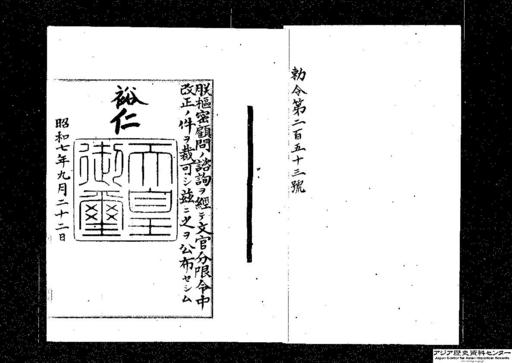 勅令第二百五十三號
朕樞密顧問ノ諮詢ヲ經テ文官分限令中
改正ノ件ヲ裁可シ茲ニ之ヲ公布セシム
裕仁
天皇
御璽
昭和七年九月二十二日
アジア歴史資料センター
Japan Center for Asian Historical Records